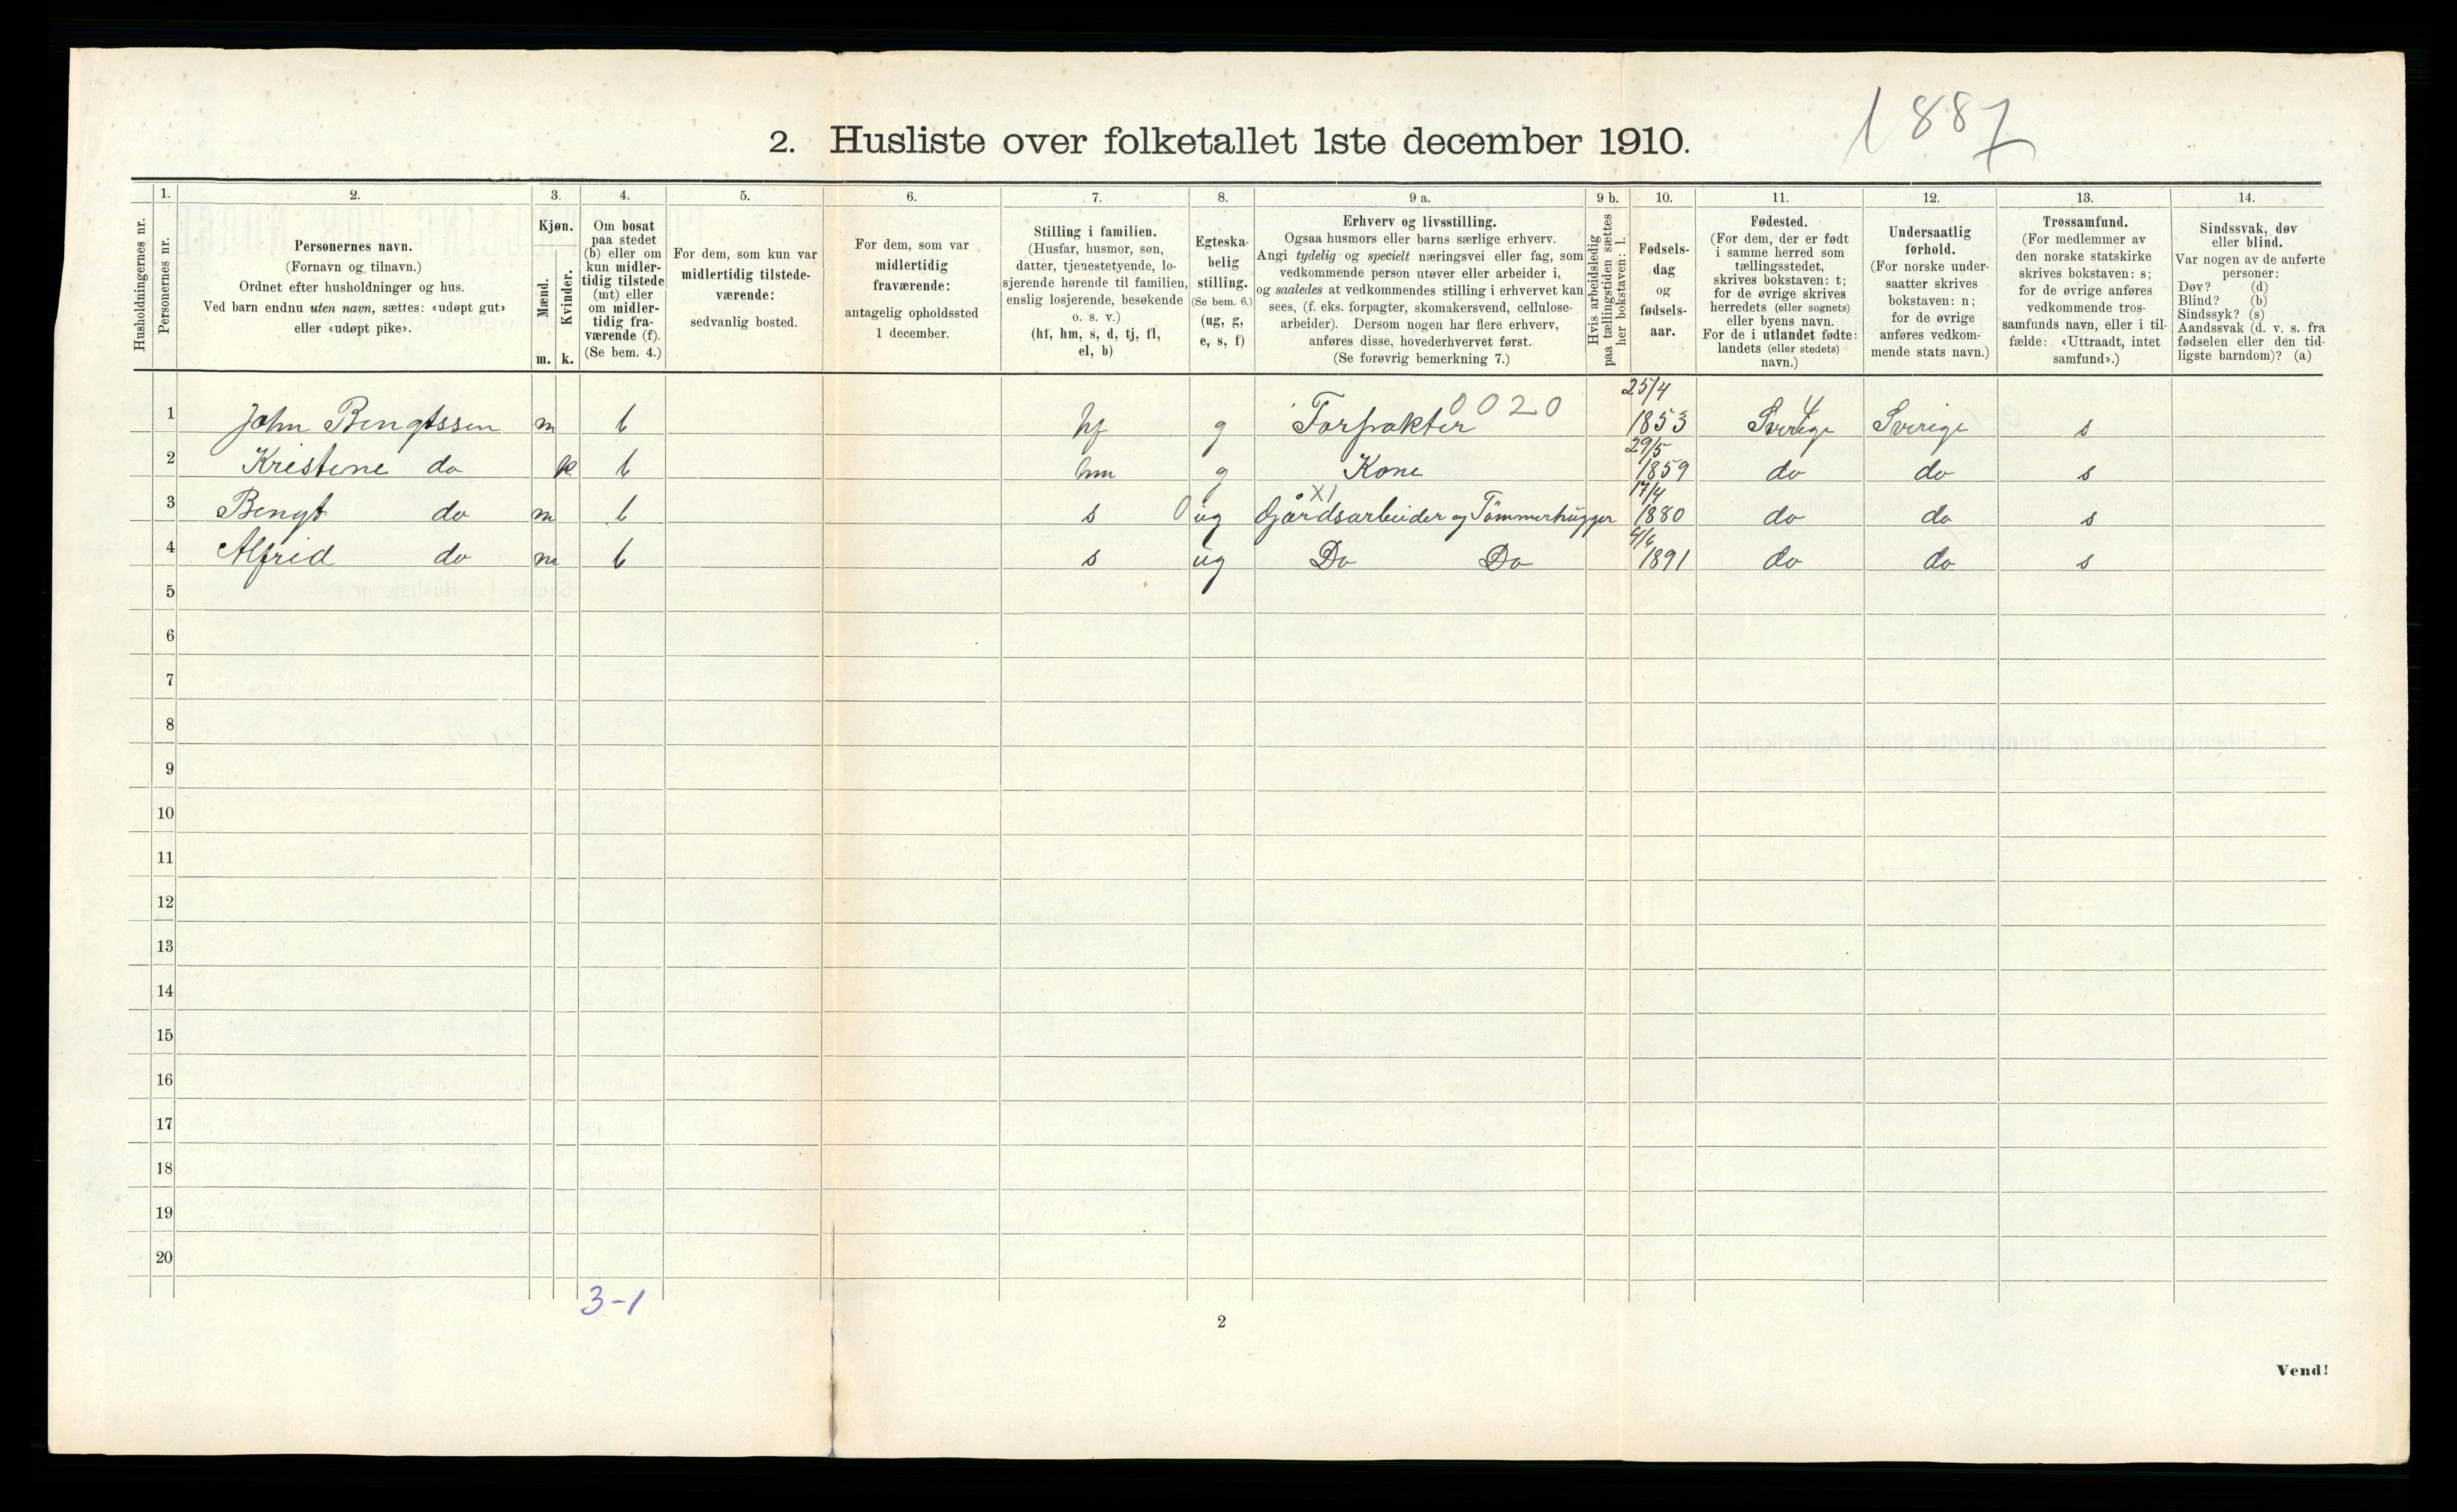 1887
2. Husliste over folketallet 1ste december 1910.
Husholdningernes nr.
1.
Personernes nr.
2.
Personernes navn.
(Fornavn og tilnavn.)
Ordnet efter husholdninger og hus.
Ved barn endnu uten navn, sættes: «udøpt gut»
eller «udøpt pike».
3.
Kjøn.
Mænd.
Kvinder.
m. k.
4.
Om bosat
paa stedet
(b) eller om
kun midler-
tidig tilstede
(mt) eller
om midler-
tidig fra-
værende (f).
(Se bem. 4.)
5.
For dem, som kun var
midlertidig tilstede-
værende:
sedvanlig bosted.
6.
For dem, som var
midlertidig
fraværende:
antagelig opholdssted
1 december.
7.
Stilling i familien.
(Husfar, husmor, søn,
datter, tjenestetyende, lo-
sjerende hørende til familien,
enslig losjerende, besøkende
o. s. v.)
(hf, hm, s, d, tj, fl,
el, b)
8.
Egteska-
belig
stilling.
(Se bem. 6.)
(ug, g,
e, s, f)
9 a.
Erhverv og livsstilling.
Ogsaa husmors eller barns særlige erhverv.
Angi tydelig og specielt næringsvei eller fag, som
vedkommende person utøver eller arbeider i,
og saaledes at vedkommendes stilling i erhvervet kan
sees, (f. eks. forpagter, skomakersvend, cellulose-
arbeider). Dersom nogen har flere erhverv,
anføres disse, hovederhvervet først.
(Se forøvrig bemerkning 7.)
9 b.
Hvis arbeidsledig
paa tællingstiden sættes
her bokstaven: l.
10.
Fødsels-
dag
og
fødsels-
aar.
11.
Fødested.
(For dem, der er født
i samme herred som
tællingsstedet,
skrives bokstaven: t;
for de øvrige skrives
herredets (eller sognets)
eller byens navn.
For de i utlandet fødte:
landets (eller stedets)
navn.)
12.
Undersaatlig
forhold.
(For norske under-
saatter skrives
bokstaven: n;
for de øvrige
anføres vedkom-
mende stats navn.)
13.
Trossamfund.
(For medlemmer av
den norske statskirke
skrives bokstaven: s;
for de øvrige anføres
vedkommende tros-
samfunds navn, eller i til-
fælde: «Uttraadt, intet
samfund».)
14.
Sindssvak, døv
eller blind.
Var nogen av de anførte
personer:
Døv? (d)
Blind? (b)
Sindssyk? (s)
Aandssvak (d. v. s. fra
fødselen eller den tid-
ligste barndom)? (a)
0020 25/4 4
1 John Bengtssen m b hf g Forpakter 1853 Sverige Sverige s
29/5
2 Kristine do k b hm g Kone 1859 do do s
X1 17/4
3 Bengt do m b s 0 ug Gårdsarbeider og Tømmerhugger 1880 do do s
4 Alfrid do m b s ug Do Do 1891 do do s
5
6
7
8
9
10
11
12
13
14
15
16
17
18
19
20
3-1
2
Vend!